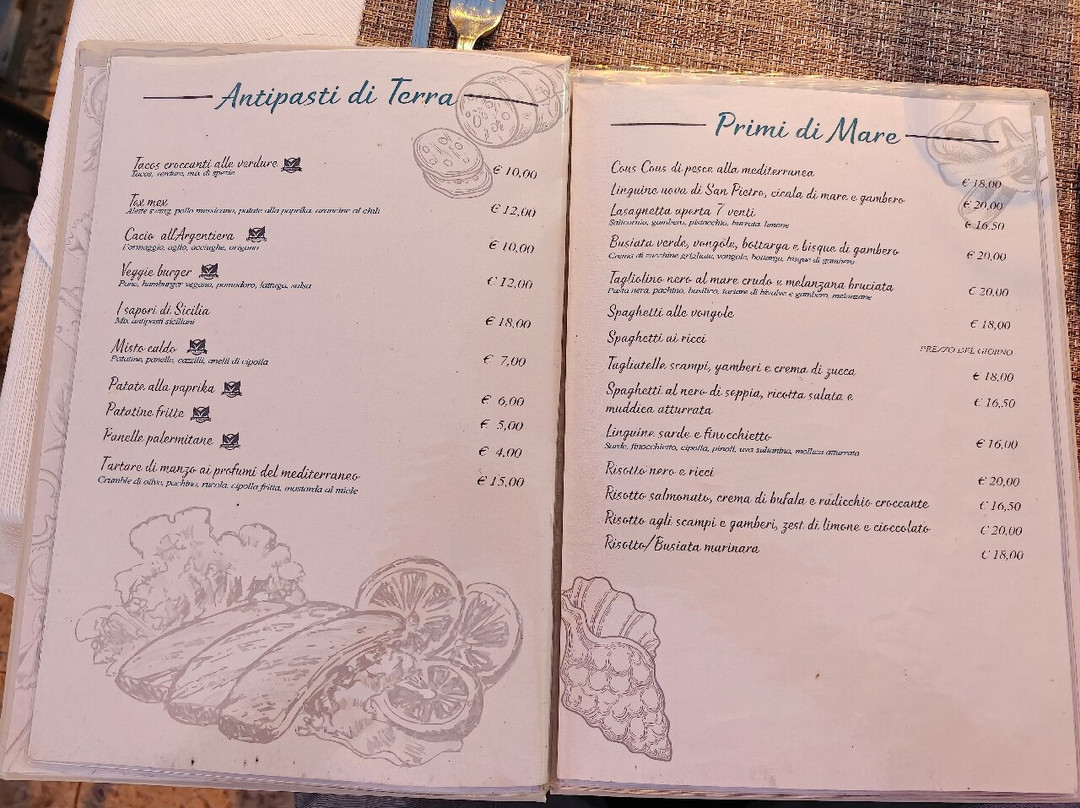 Antipasti di Terra
Tacos croccanti alle verdure
Tacos, verdure, mix di spezie
€ 10,00
Tex mex
pollo messicano, patate alla paprika, arancine al chili
€ 12,00
Cacio all'Argentiera
Formaggio, aglio, acciughe, origano
€ 10,00
Veggie burger
Pane, hamburger vegano, pomodoro, lattuga, salsa
€ 12,00
I sapori di Sicilia
Mix antipasti siciliani
€ 18,00
Misto caldo
Patatine, panelle, cazzilli, anelli di cipolla
€ 7,00
Patate alla paprika
€ 6,00
Patatine fritte
€ 5,00
Panelle palermitane
€ 4,00
Tartare di manzo ai profumi del mediterraneo
Crumble di olive, pachino, rucola, cipolla fritta, mostarda al miele
€ 15,00
Primi di Mare
Cous Cous di pesce alla mediterranea
€ 18,00
Linguine uova di San Pietro, cicala di mare e gambero
€ 20,00
Lasagnetta aperta 7 venti
Salicornia, gambero, pistacchio, burrata, limone
€ 16,50
Busiata verde, vongole, bottarga e bisque di gambero
Crema di zucchine grigliate, vongole, bottarga, bisque di gambero
€ 20,00
Tagliolino nero al mare crudo e melanzana bruciata
Pasta nera, pachino, basilico, tartare di bivalve e gambero, melanzane
€ 20,00
Spaghetti alle vongole
€ 18,00
Spaghetti ai ricci
PREZZO DEL GIORNO
Tagliatelle scampi, gamberi e crema di zucca
€ 18,00
Spaghetti al nero di seppia, ricotta salata e
muddica atturrata
€ 16,50
Linguine sarde e finocchietto
Sarde, finocchietto, cipolla, pinoli, uva sultanina, mollica atturrata
€ 16,00
Risotto nero e ricci
€ 20,00
Risotto salmonato, crema di bufala e radicchio croccante
€ 16,50
Risotto agli scampi e gamberi, zest di limone e cioccolato
€ 20,00
Risotto/Busiata marinara
€ 18,00